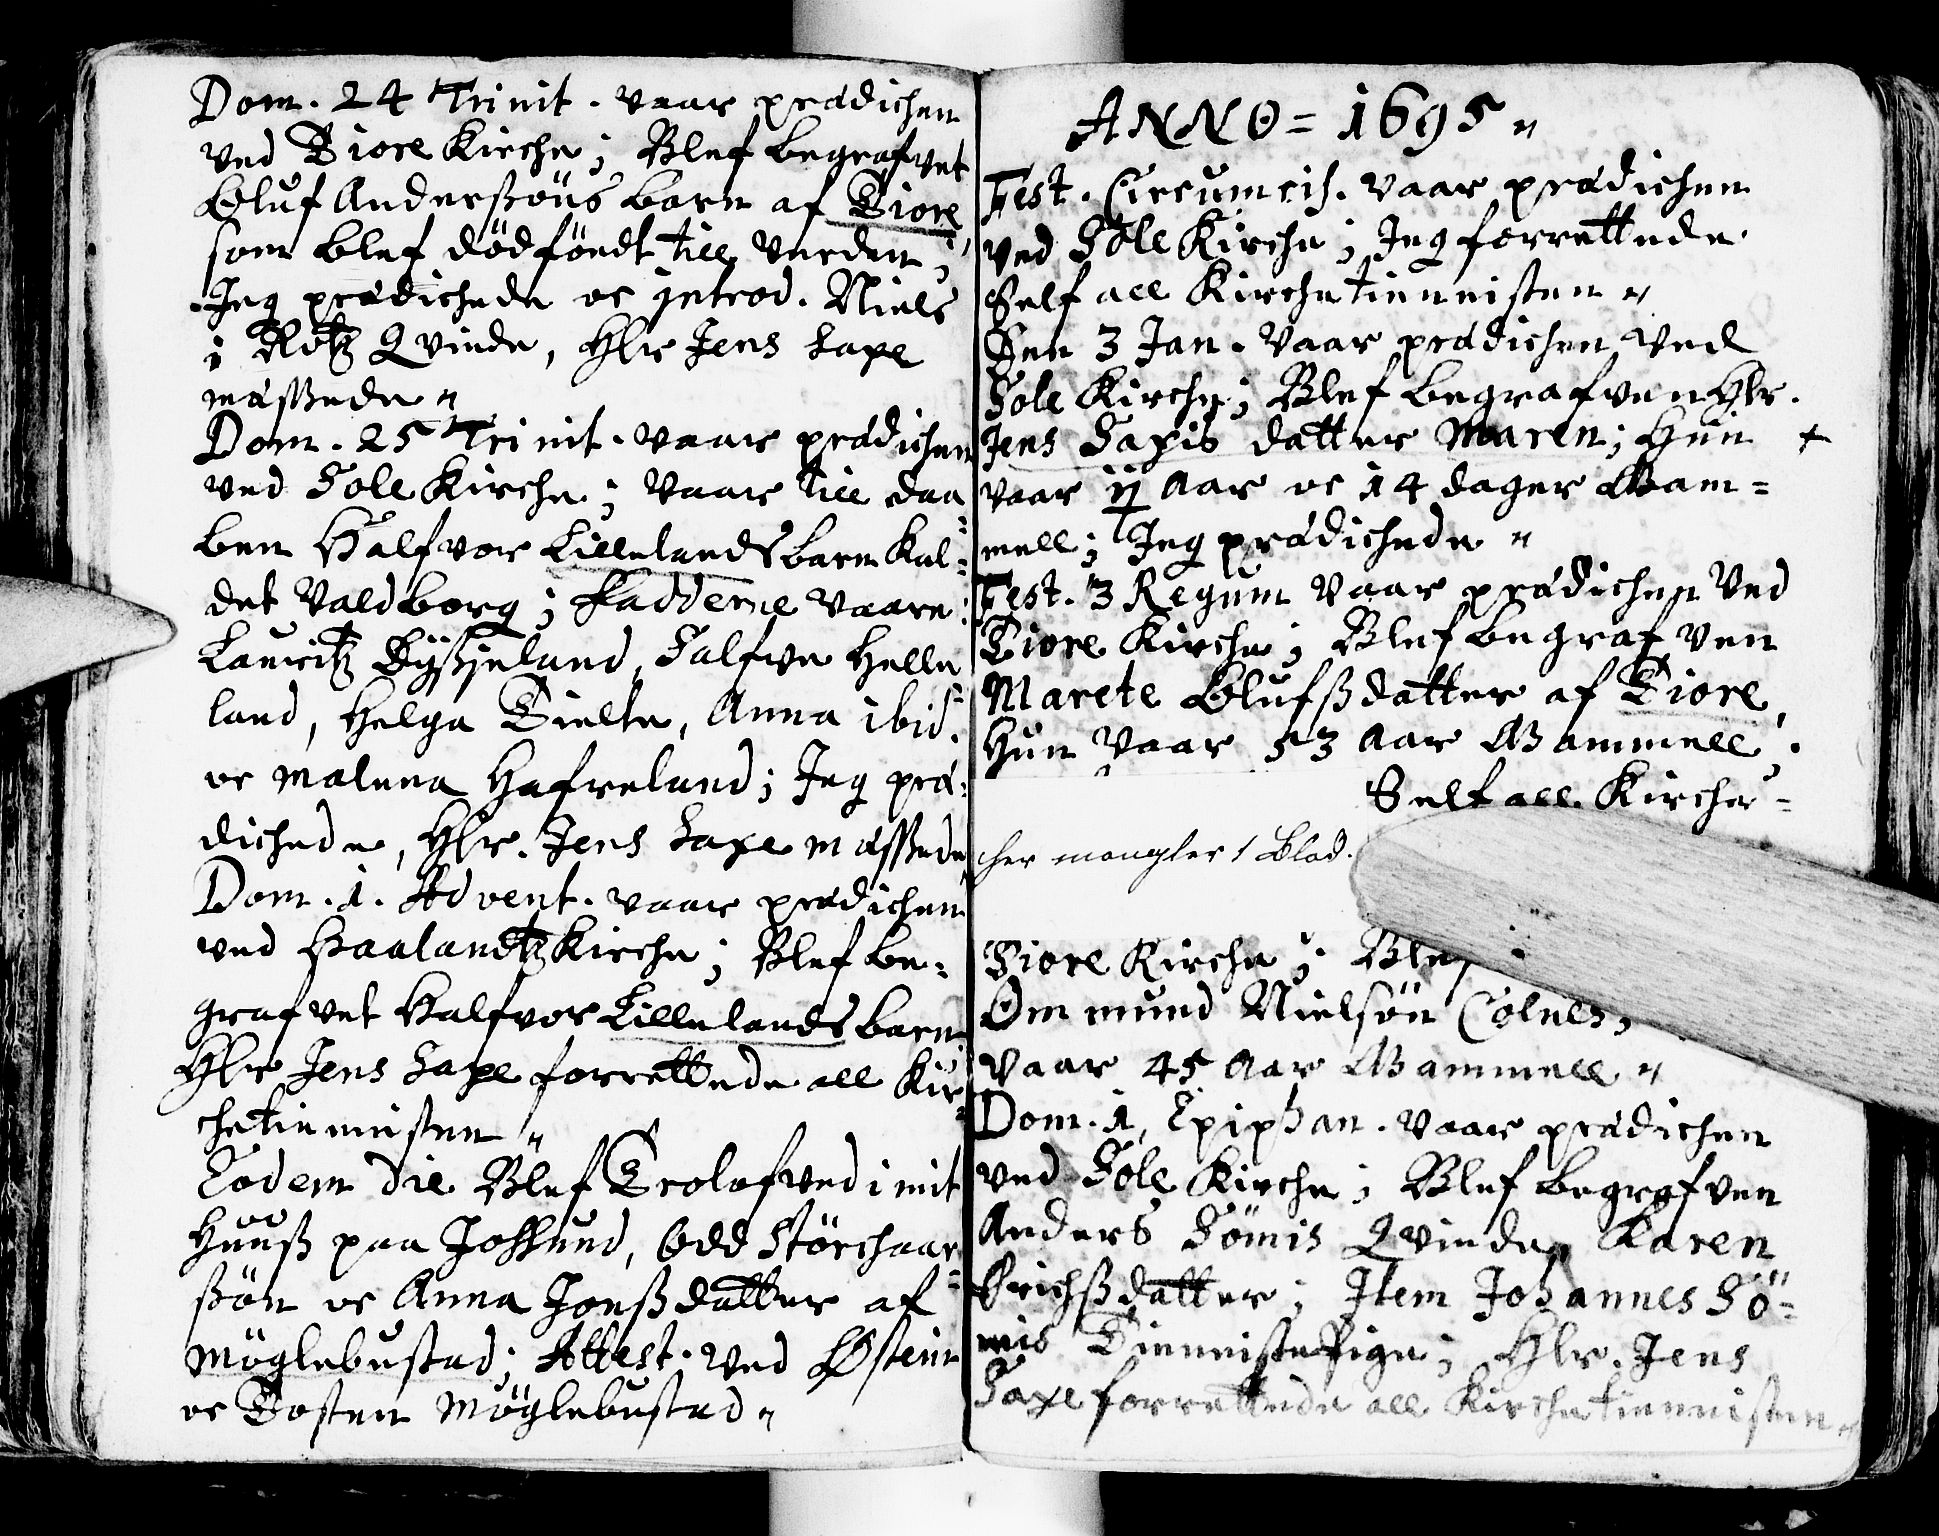 Dom. 24 Trinit. vaar prædichen
ved Tiore Kirche; Blef begrafvet
Oluf Anderßöns barn af Tiore
som blef dödföndt till verden;
Jeg prædichede oc introd. Niels
i Rötz Qvinde, Hlr Jens Saxe
mæßede"
Dom. 25 Trinit. vaar prædichen
ved Sole Kirche; vaar till daa=
ben Halfvor Lillelands barn Kal=
det Valdborg; Fadderne vaare:
Lauritz Byßjeland, Salfve Helle
land, Helga Tielte, Anna ibid.
oc Malena Hafreland; Jeg præ=
dichede, Hlr. Jens Saxe mæßede
Dom. 1. Advent. vaar prædichen
ved Haalandtz Kirche; Blef be=
grafvet Halfvor Lillelands barn
Hlr Jens Saxe forrettede all Kir=
chetiennisten"
Eodem die Blef Trolofved i mit
Huuß paa Joßund, Odd Störchaar=
ßön oc Anna Jonßdatter af
Möglebustad; Attest. ved Østein
oc Tosten Möglebustad"
ANNO = 1695"
Fest. Circumcis. vaar prædichen
ved Sole Kirche; Jeg forrettede
Self all Kirchetiennisten"
Den 3 Jan. vaar prædichen ved
Sole Kirche; Blef begrafven Hlr.
Jens Saxis datter Maren; Hun +
vaar 11 Aar oc 14 dager Gam=
mell; Jeg prædichede"
Fest. 3 Regum vaar prædichen ved
Tiore Kirche; Blef begrafven
Marete Olufßdatter af Tiore,
Hun vaar 53 Aar Gammell;
Self all Kirche=
her mangler 1 Blad.
Tiore Kirche; Blef
Ommund Nielsön Colnes,
vaar 45 Aar Gammell"
Dom. 1. Epiphan. vaar prædichen
ved Sole Kirche; Blef begrafven
Anders Sömis Qvinde, Karen
Erichßdatter; Item Johannes Sö=
mis Tienniste Pige; Hlr. Jens
Saxe forrettede all Kirchetiennisten"